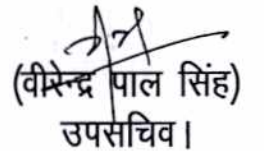 (वीरेन्द्र पाल सिंह)
उपसचिव।